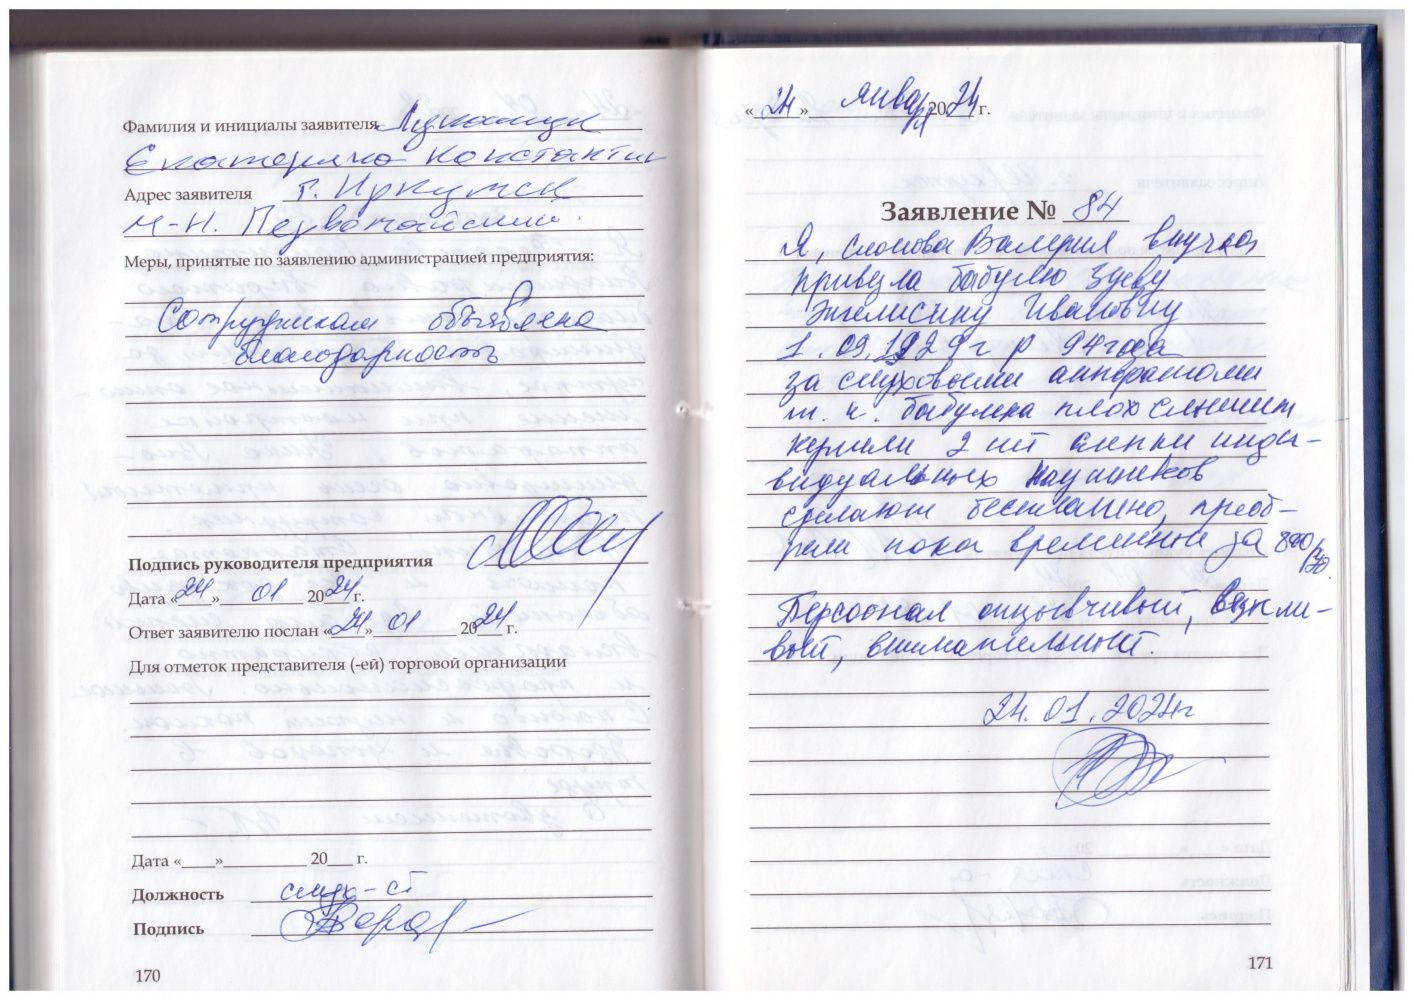 Фамилия и инициалы заявителя
Екатерина Константин
Адрес заявителя г. Иркутск
м-н. Первомайский.
Меры, принятые по заявлению администрацией предприятия:
Сотрудникам объявлена
благодарность
Подпись руководителя предприятия
Дата «24» 01 2024 г.
Ответ заявителю послан «24» 01 2024 г.
Для отметок представителя (-ей) торговой организации
Дата «____»__________ 20___ г.
Должность
Подпись
170
«24» января 2024 г.
Заявление № 84
Я, Слонова Валерия внучка
привезла бабулю Зуеву
Ивановну
1.09.1929 г р 94 года
за слуховыми аппаратами
т. к. бабулька плох слышит
2 шт слепки инди-
видуальных наушников
сделают бесплатно, приоб-
рели пока временные за 800/
Персоонал отзывчивый, вежли-
вый, внимательный.
24.01.2024г
171